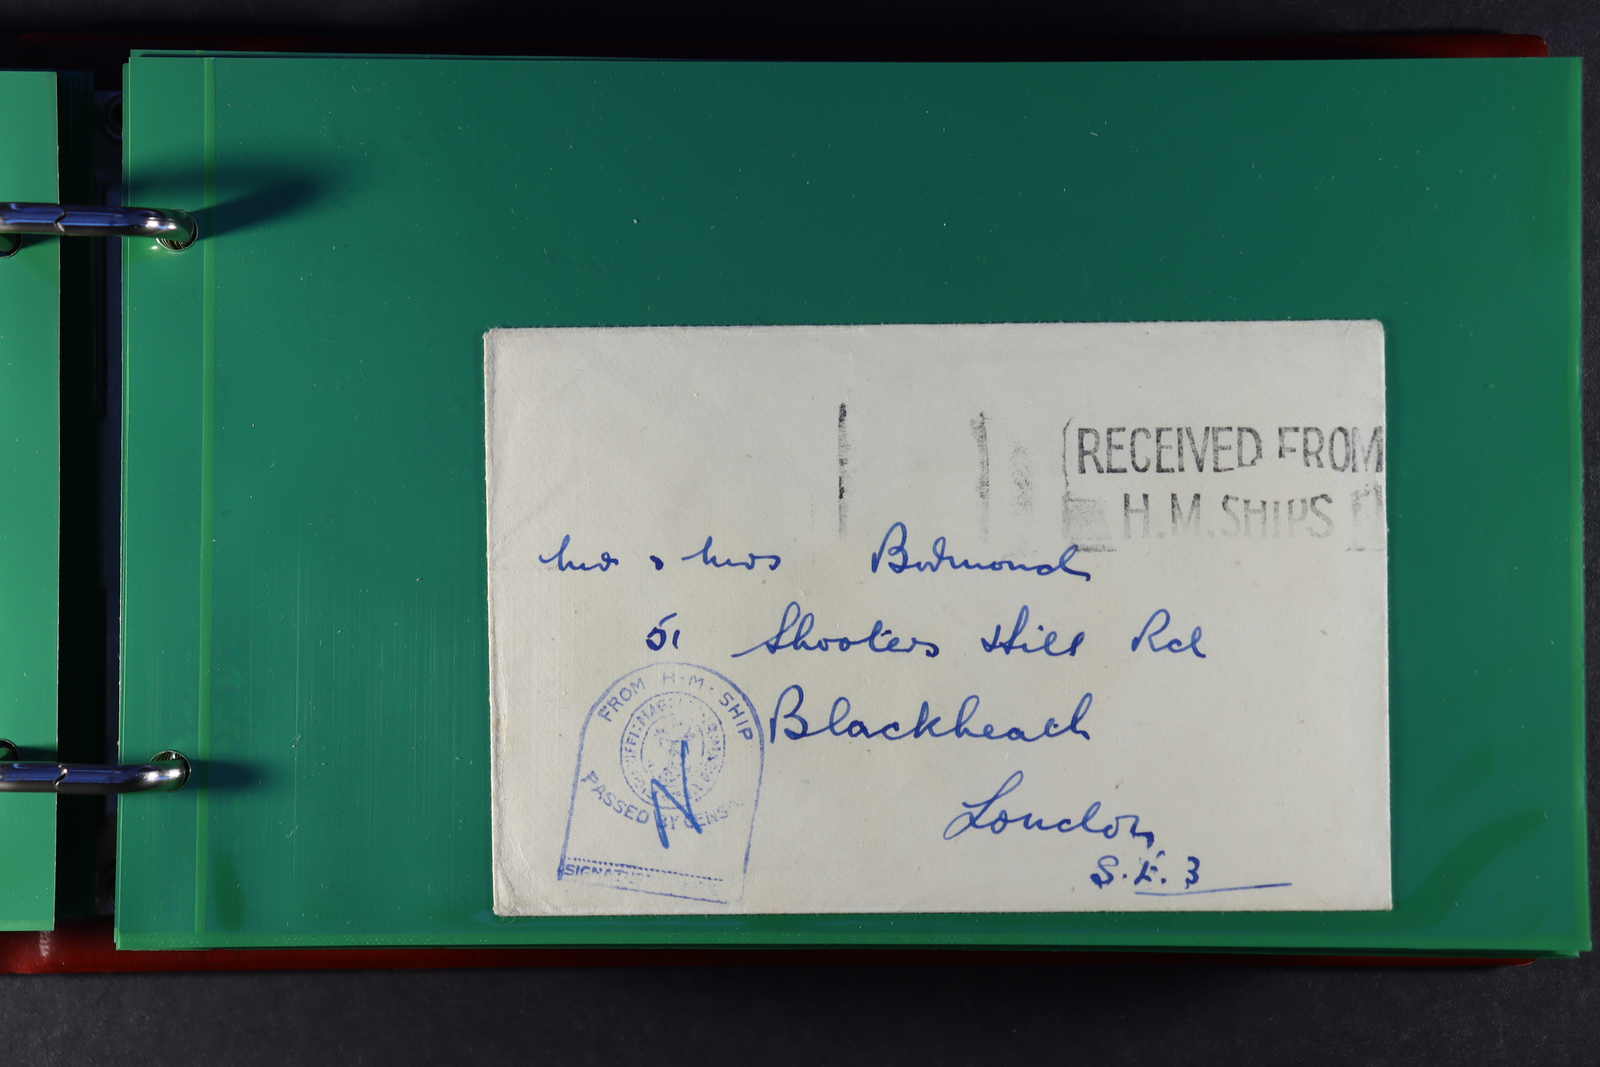 RECEIVED FROM
H.M. SHIPS
Mr & Mrs
51 Shooters Hill Rd
Blackheath
London
S.E.3
FROM H.M. SHIP
PASSED BY CENSOR
SIGNATURE